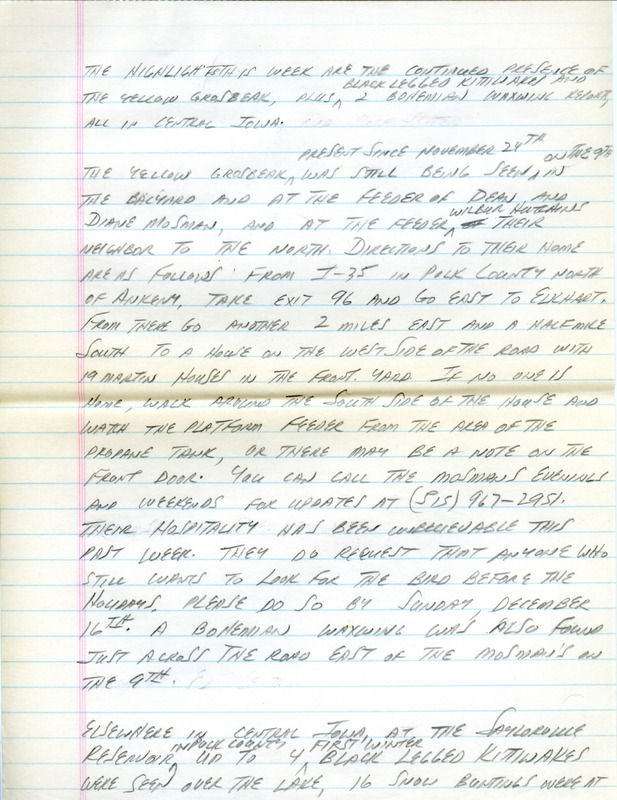 THE HIGHLIGHTS THIS WEEK ARE THE CONTINUED PRESENCE OF
BLACK LEGGED KITTIWAKE AND
THE YELLOW GROSBEAK, PLUS ^ 2 BOHEMIAN WAXWING REPORTS,
ALL IN CENTRAL IOWA.
PRESENT SINCE NOVEMBER 24TH ON THE 9TH
THE YELLOW GROSBEAK, ^ WAS STILL BEING SEEN ^ IN
THE BACKYARD AND AT THE FEEDER OF DEAN AND
WILBUR HUTCHINS
DIANE MOSMAN, AND AT THE FEEDER ^ THEIR
NEIGHBOR TO THE NORTH. DIRECTIONS TO THEIR HOME
ARE AS FOLLOWS: FROM I-35 IN POLK COUNTY NORTH
OF ANKENY, TAKE EXIT 96 AND GO EAST TO ELKHART.
FROM THERE GO ANOTHER 2 MILES EAST AND A HALF MILE
SOUTH TO A HOUSE ON THE WEST SIDE OF THE ROAD WITH
19 MARTIN HOUSES IN THE FRONT YARD. IF NO ONE IS
HOME, WALK AROUND THE SOUTH SIDE OF THE HOUSE AND
WATCH THE PLATFORM FEEDER FROM THE AREA OF THE
PROPANE TANK, OR THERE MAY BE A NOTE ON THE
FRONT DOOR. YOU CAN CALL THE MOSMANS EVENINGS
AND WEEKENDS FOR UPDATES AT (515) 967-2951.
THEIR HOSPITALITY HAS BEEN UNBELIEVABLE THIS
PAST WEEK. THEY DO REQUEST THAT ANYONE WHO
STILL WANTS TO LOOK FOR THE BIRD BEFORE THE
HOLIDAYS, PLEASE DO SO BY SUNDAY, DECEMBER
16TH. A BOHEMIAN WAXWING WAS ALSO FOUND
JUST ACROSS THE ROAD EAST OF THE MOSMAN'S ON
THE 9TH.
ELSEWHERE IN CENTRAL IOWA, AT THE SAYLORVILLE
IN POLK COUNTY FIRST WINTER
RESERVOIR ^ UP TO 4 ^ BLACK LEGGED KITTIWAKES
WERE SEEN OVER THE LAKE, 16 SNOW BUNTINGS WERE AT